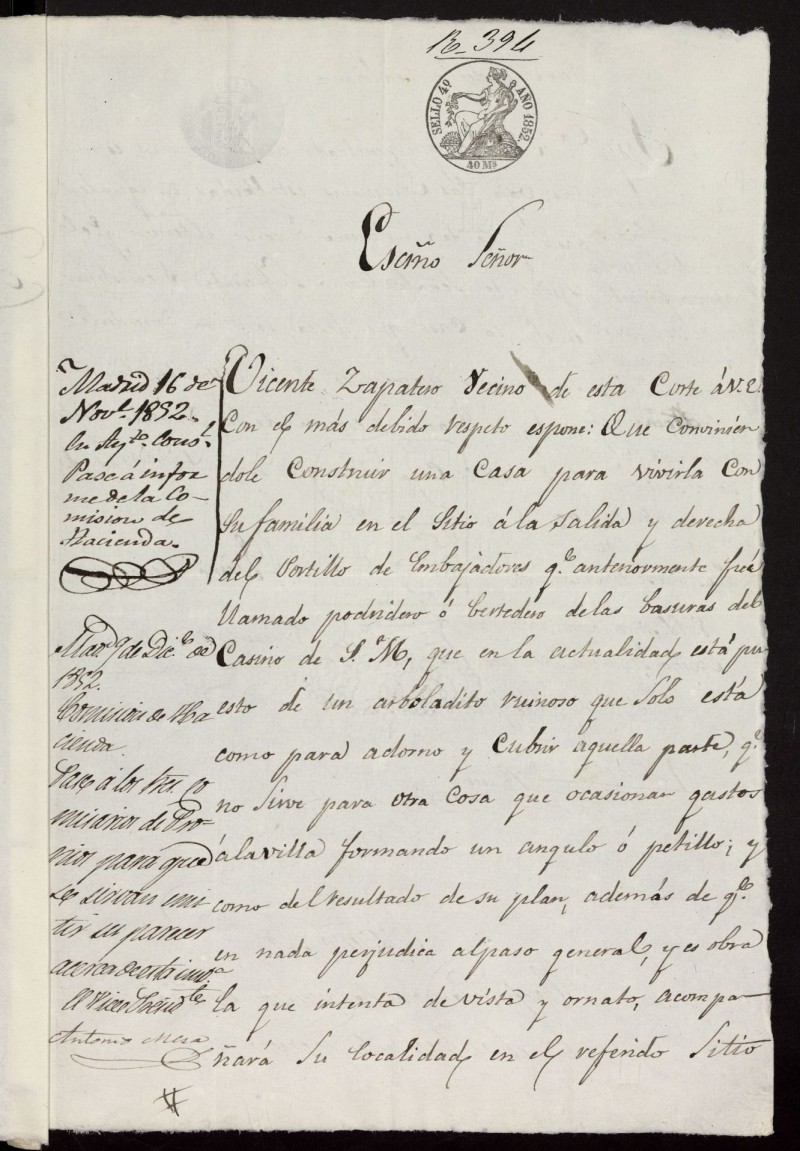 R. 394
SELLO 4º AÑO 1852.
40 Ms
Escmo Señor
Madrid 16 de
Nove. 1852.
En Ayto. Const.
Pase á infor
me de la Co-
mision de
Hacienda.
Mad. 9 de Dice. de
1852.
Comision de Ha
cienda.
Pase a los Sres. Co
misarios de Pro-
pios para que
se sirvan emi
tir su parecer
acerca de esta inst.a
El Vice Presid.te
Antonio Mesa
Vicente Zapatero Vecino de esta Corte á V.E.
Con el más debido respeto espone: Que Convinien
dole Construir una Casa para vivirla Con
Su familia en el Sitio á la Salida y derecha
del Portillo de Embajadores q.e anteriormente fué
llamado podridero ó bertedero de las basuras del
Casino de S. M, que en la actualidad está pu
esto de un arboladito ruinoso que Solo está
como para adorno y Cubrir aquella parte, q.e
no Sirve para otra Cosa que ocasionar gastos
á la villa formando un angulo ó petillo; y
como del resultado de su plan, además de q.e
en nada perjudica al paso general, y es obra
la que intenta de vista y ornato, acompa-
ñará Su localidad en el referido Sitio